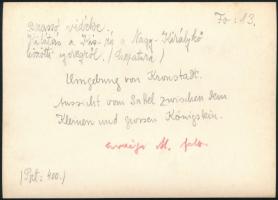 Fo: 13.
Brassó vidéke.
Kilátás a Kis- és a Nagy-Királykő
közötti nyeregről. (Curpatura)
Umgebung von Kronstadt.
Aussicht vom Sattel zwischen dem
Kleinen und grossen Königstein.
M. felv.
(Ppt: 400.)